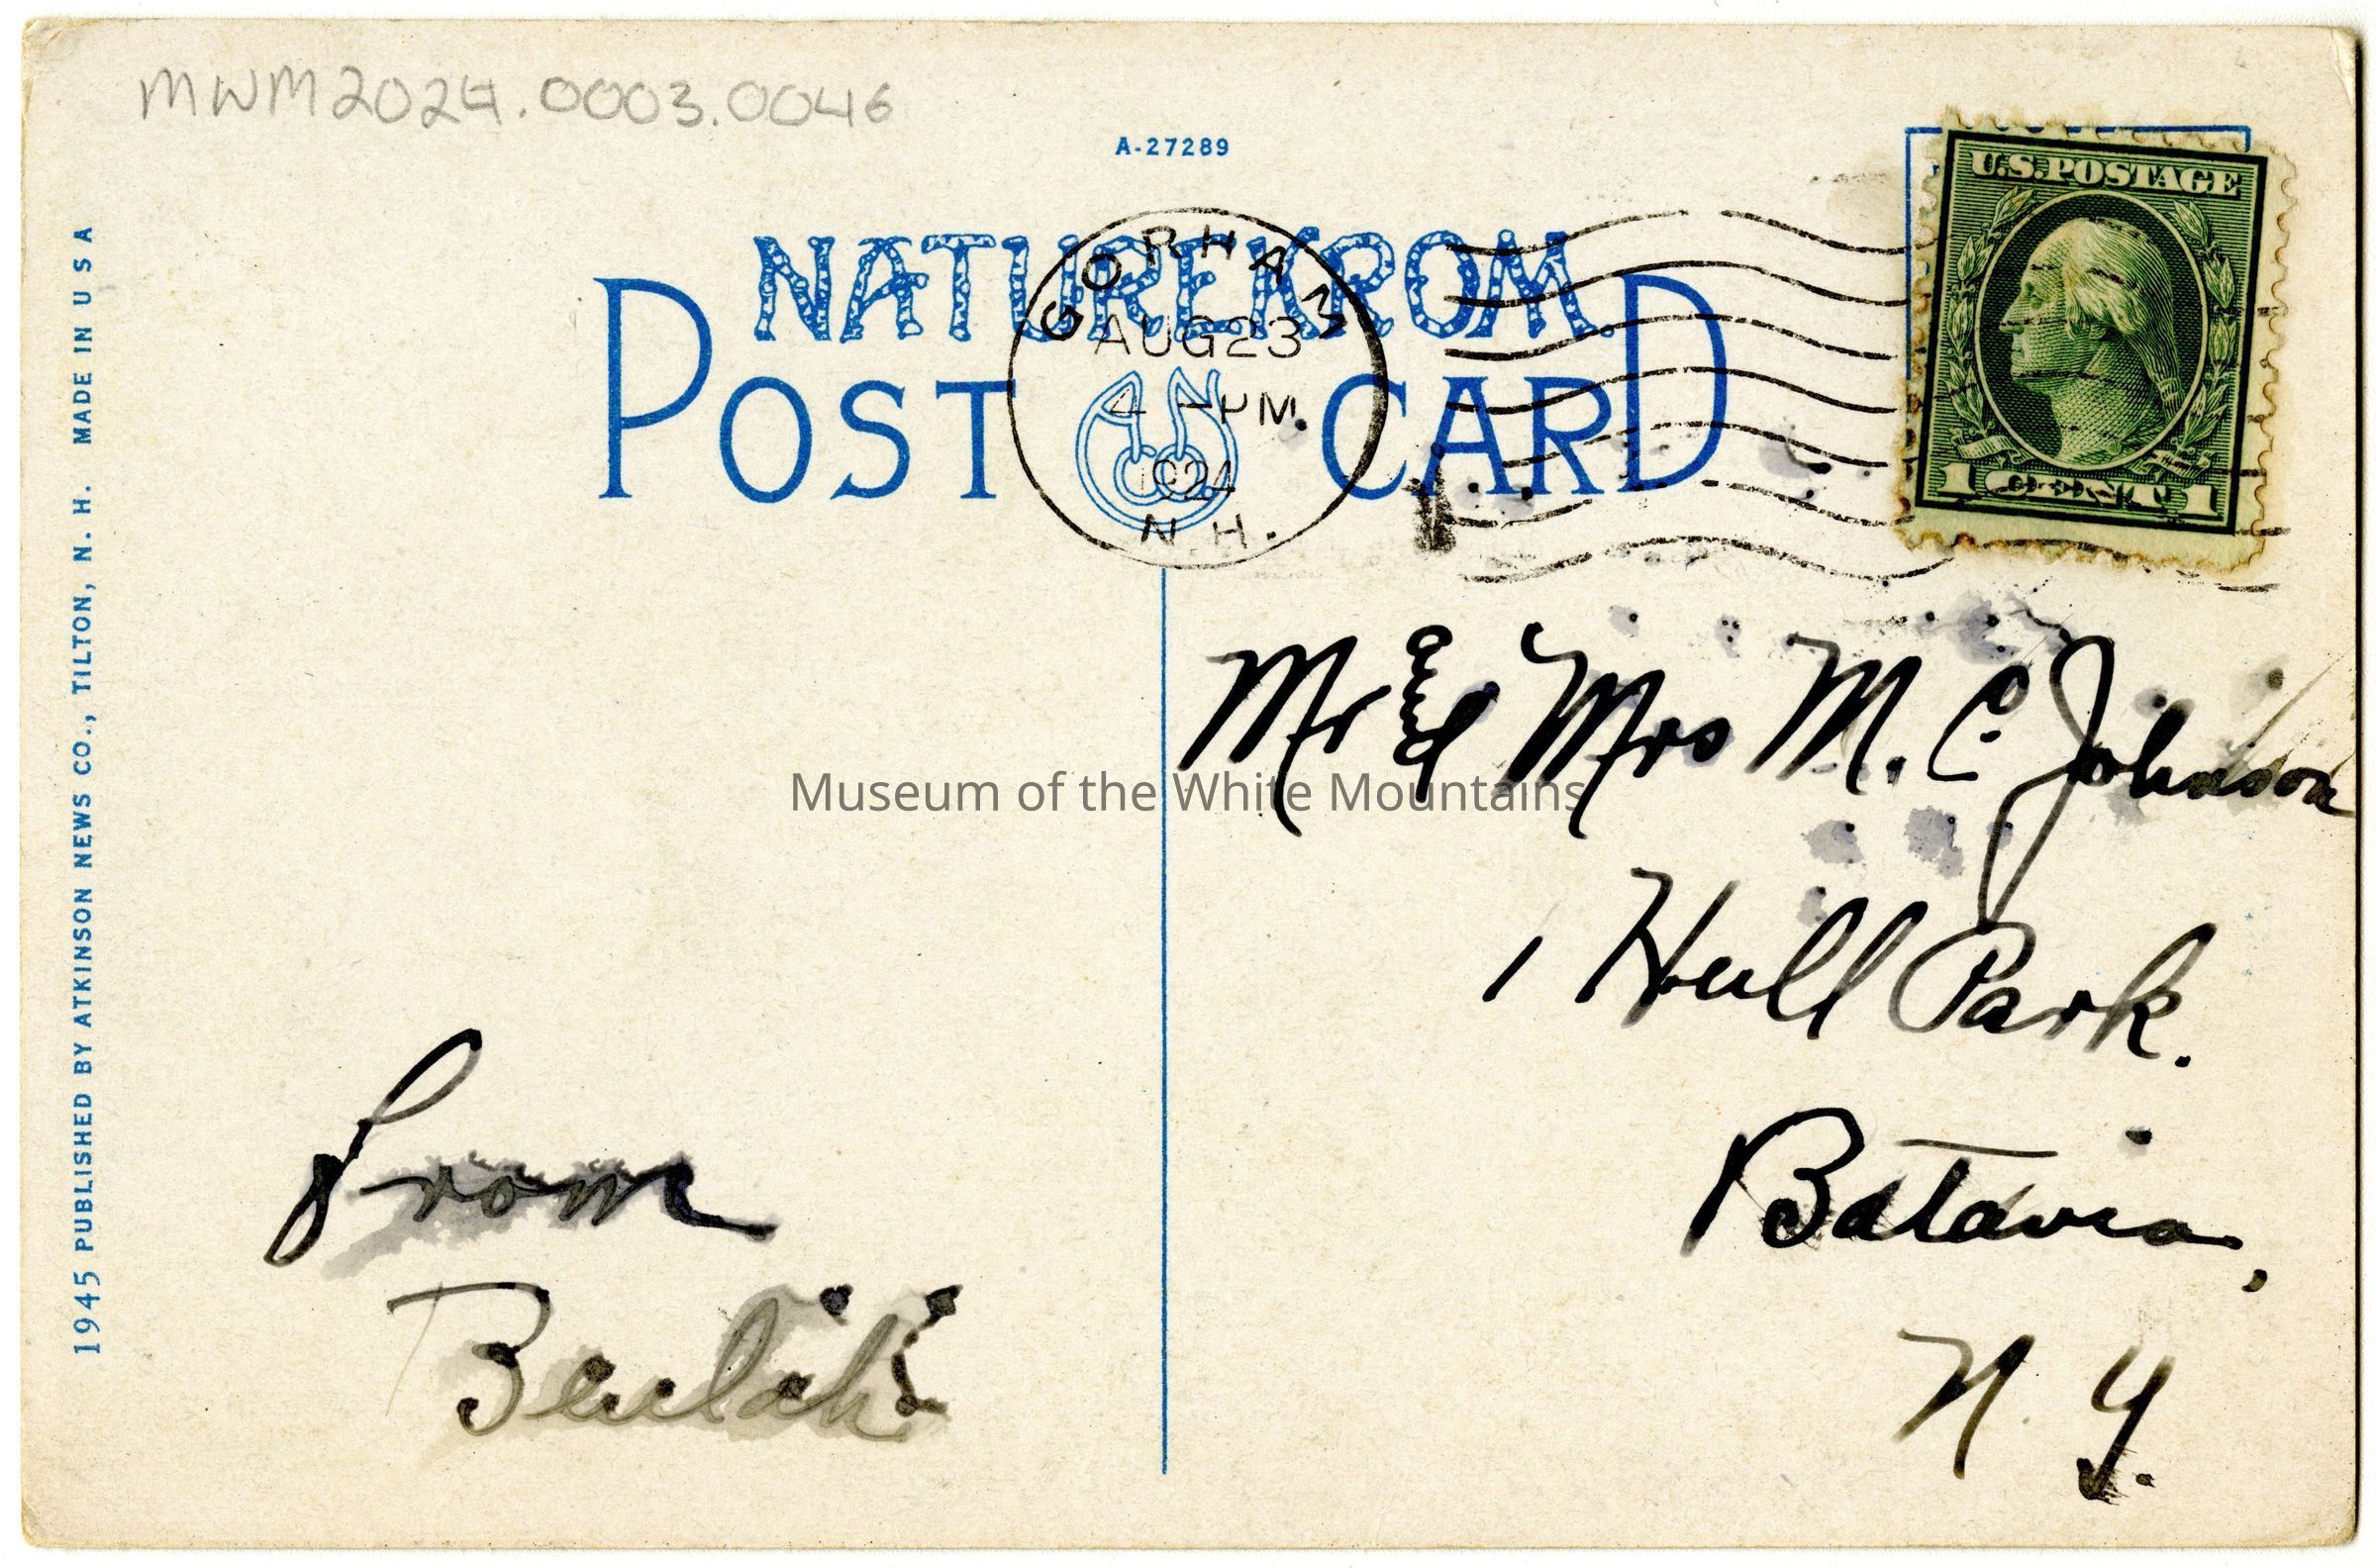 MWM2024.0003.0046
A-27289
NATUREKROM
POST CARD
GORHAM
AUG 23
4 - PM.
1924
N.H.
U.S. POSTAGE
1 CENT 1
1945 PUBLISHED BY ATKINSON NEWS CO., TILTON, N. H. MADE IN U S A
Mr & Mrs M. C. Johnson
1 Hull Park.
Batavia,
N. Y.
From
Beulah
Museum of the White Mountains